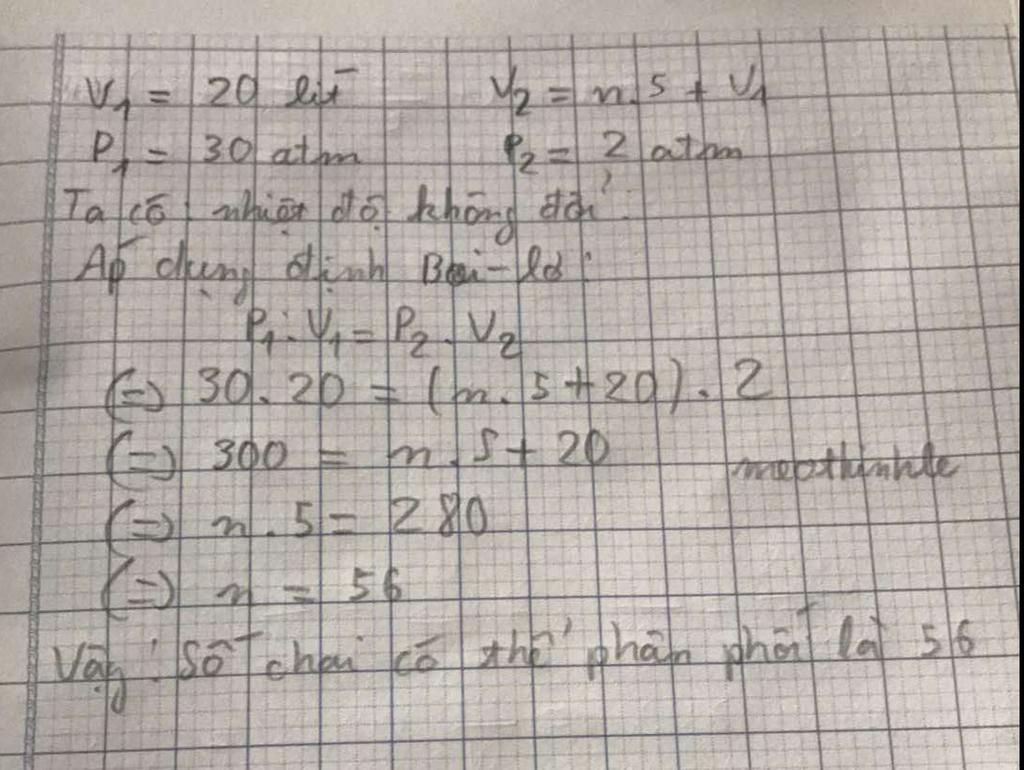 V₁ = 20 lít V₂ = n.5 + V₁
P₁ = 30 atm P₂ = 2 atm
Ta có nhiệt độ không đổi.
Áp dụng định Bôi-lơ:
P₁.V₁ = P₂.V₂
(=) 30.20 = (n.5+20).2
(=) 300 = n.5+20
meothinhte
(=) n.5 = 280
(=) n = 56
Vậy: Số chai có thể phân phối là 56